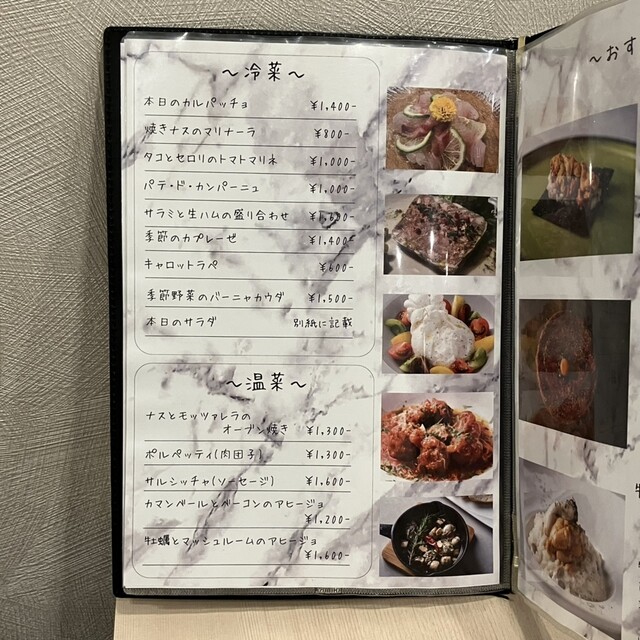 ～冷菜～
本日のカルパッチョ ¥1,400-
焼きナスのマリナーラ ¥800-
タコとセロリのトマトマリネ ¥1,000-
パテ・ド・カンパーニュ ¥1,000-
サラミと生ハムの盛り合わせ ¥1,600-
季節のカプレーゼ ¥1,400-
キャロットラペ ¥600-
季節野菜のバーニャカウダ ¥1,500-
本日のサラダ 別紙に記載
～温菜～
ナスとモッツァレラの
オーブン焼き ¥1,300-
ポルペッティ(肉団子) ¥1,300-
サルシッチャ(ソーセージ) ¥1,600-
カマンベールとベーコンのアヒージョ
¥1,200-
牡蠣とマッシュルームのアヒージョ
¥1,600-
～おす